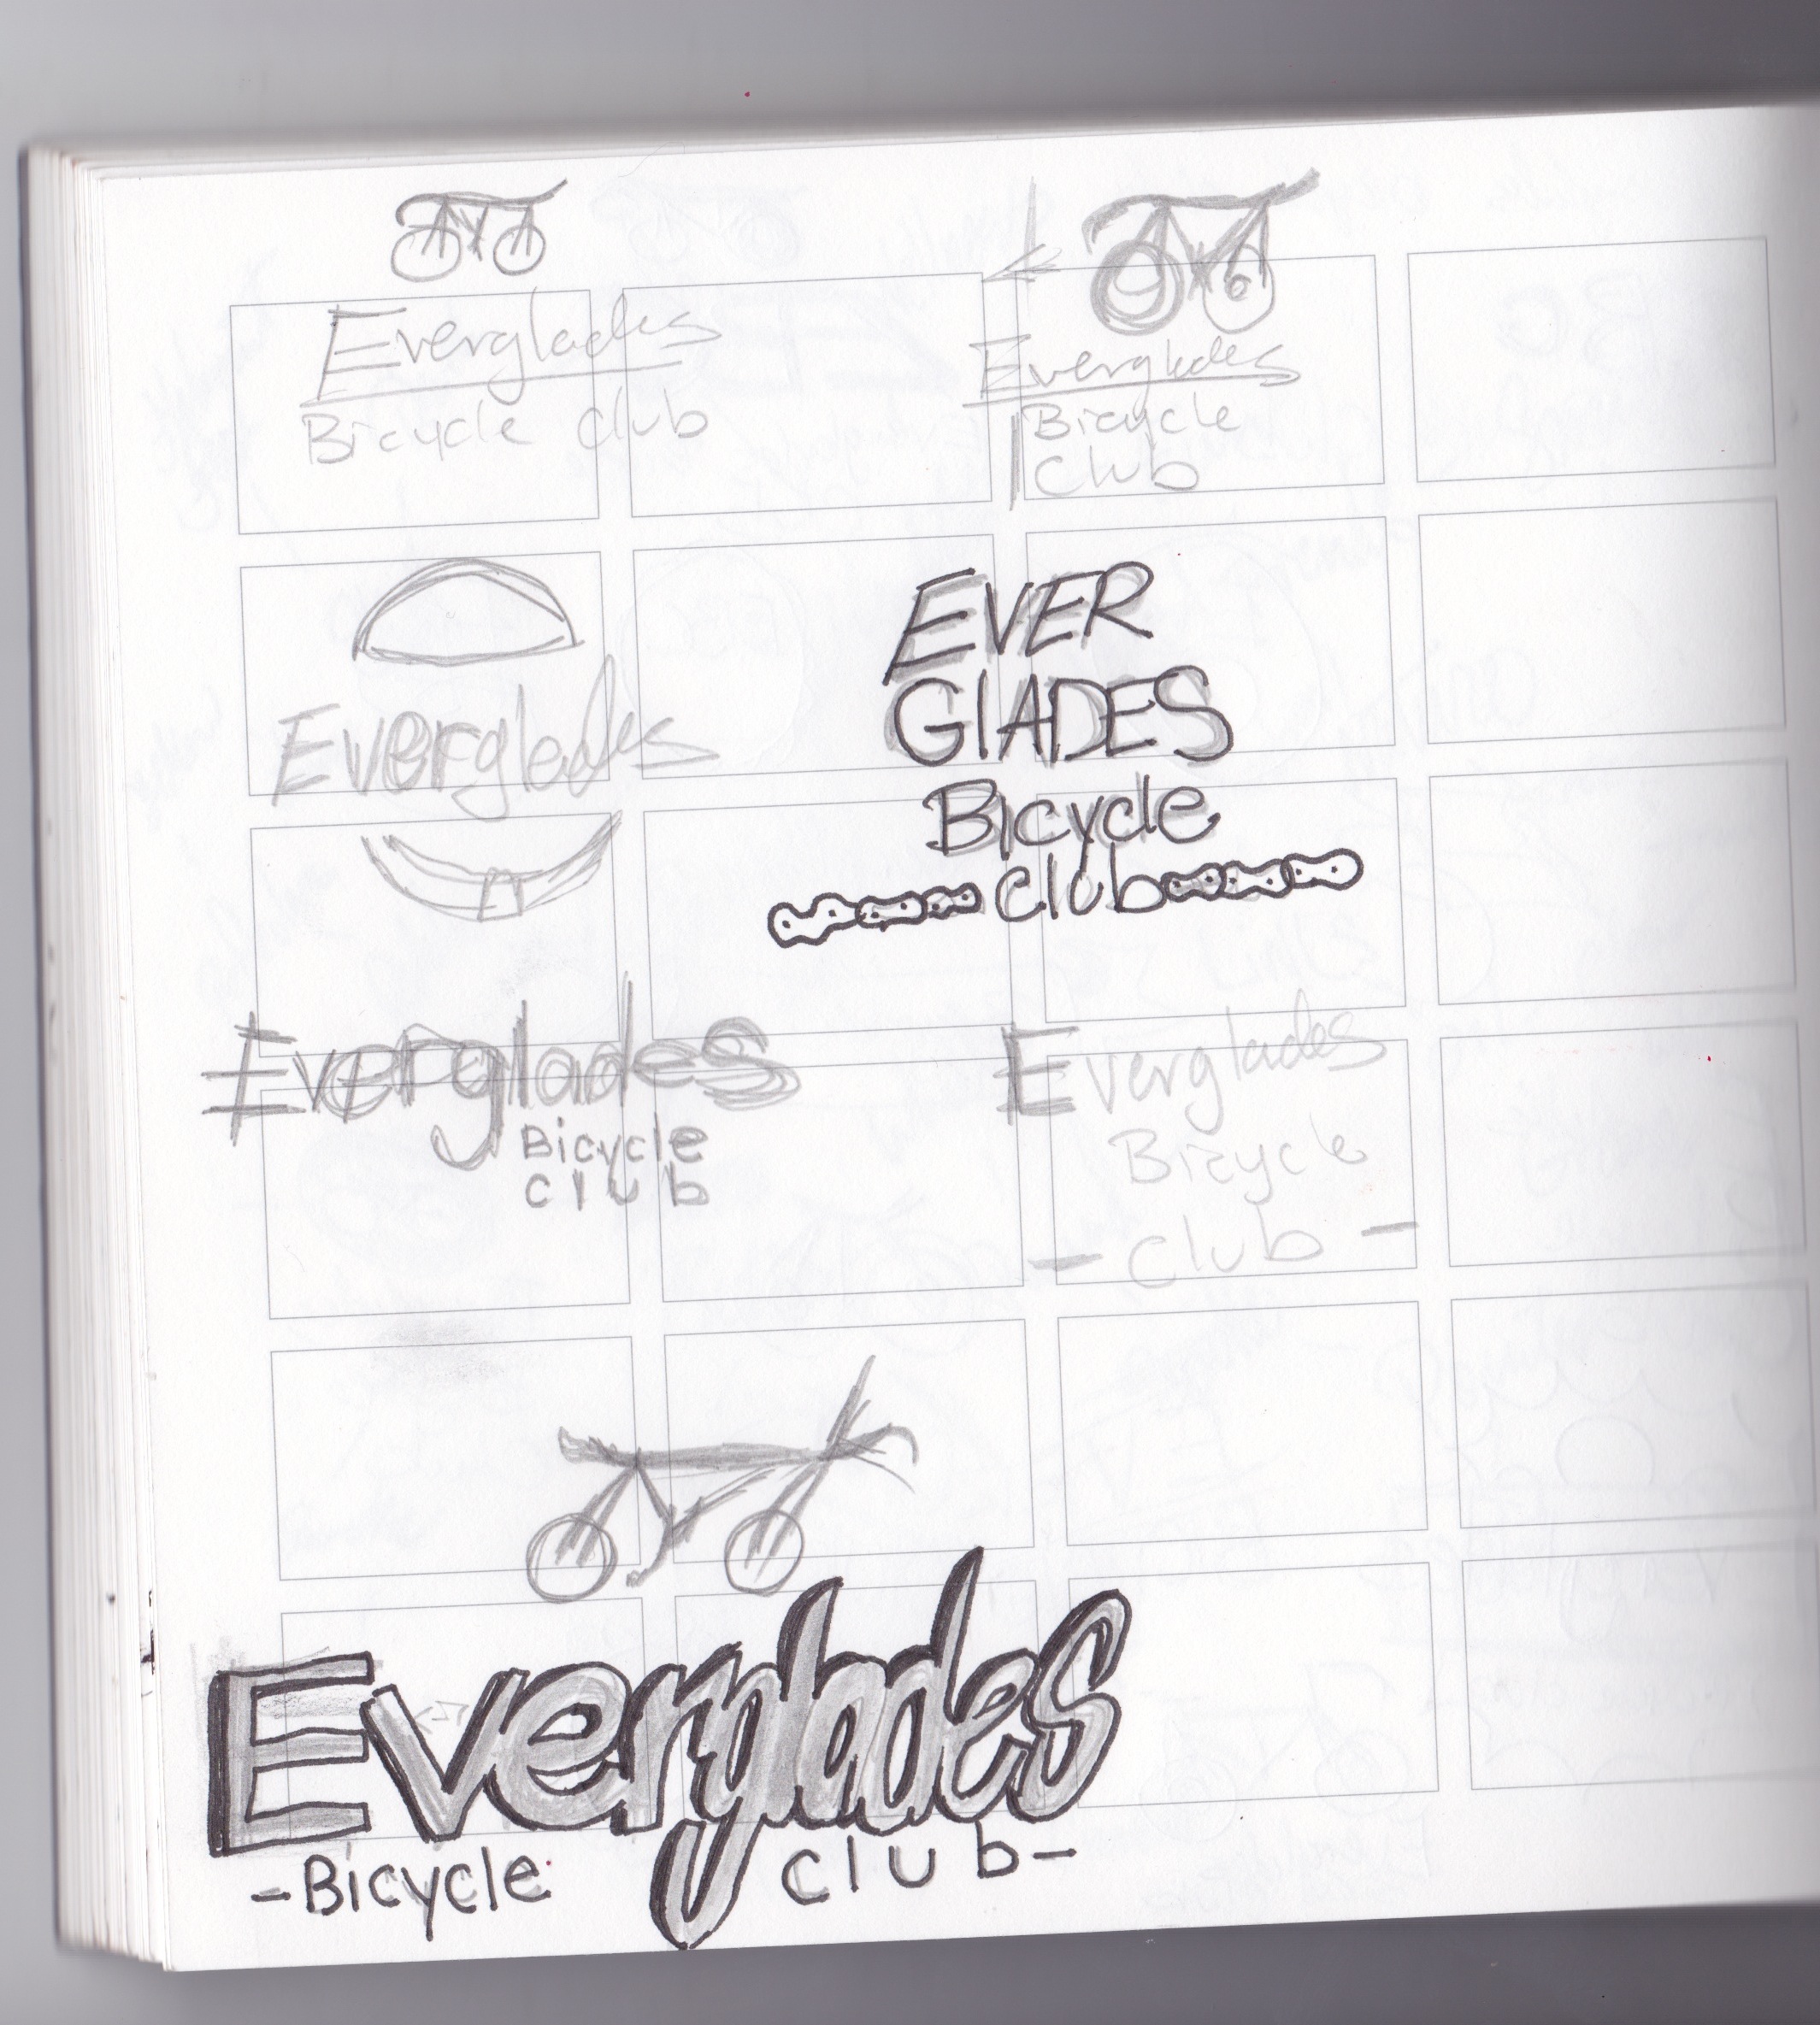 Everglades
Bicycle Club
Everglades
Bicycle
Club
Everglades
EVER
GLADES
Bicycle
Club
Everglades
Bicycle
Club
Everglades
Bicycle
- Club -
Everglades
- Bicycle Club -